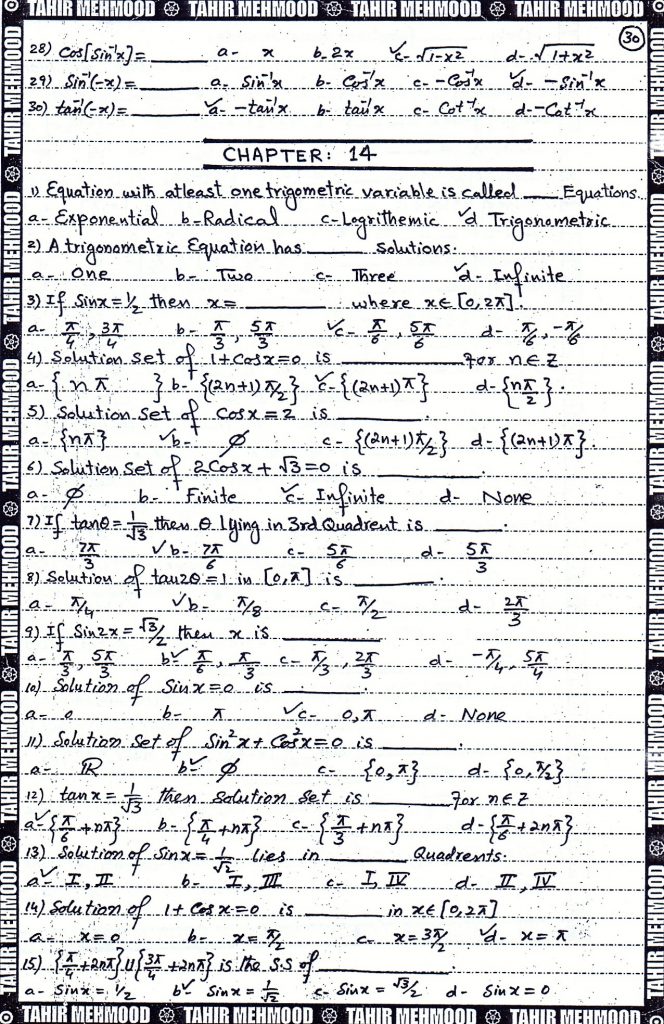 TAHIR MEHMOOD TAHIR MEHMOOD TAHIR MEHMOOD TAHIR MEHMOOD
30
28) Cos[Sin⁻¹x]= ____ a- x b- 2x ✓c- √1-x² d- √1+x²
29) Sin⁻¹(-x)= ____ a- Sin⁻¹x b- Cos⁻¹x c- -Cos⁻¹x ✓d- -Sin⁻¹x
30) tan⁻¹(-x)= ____ ✓a- -tan⁻¹x b- tan⁻¹x c- Cot⁻¹x d- -Cot⁻¹x
CHAPTER: 14
1) Equation with atleast one trigometric variable is called ____ Equations.
a- Exponential b- Radical c- Logrithemic ✓d Trigonometric
2) A trigonometric Equation has ____ Solutions.
a- One b- Two c- Three ✓d- Infinite
3) If Sinx = 1/2 then x= ____ where x∈[0,2π].
a- π/4, 3π/4 b- π/3, 5π/3 ✓c- π/6, 5π/6 d- π/6, -π/6
4) Solution set of 1+Cosx=0 is ____ For n∈Z
a- {nπ} b- {(2n+1)π/2} ✓c- {(2n+1)π} d- {nπ/2}.
5) Solution Set of Cosx=2 is ____.
a- {nπ} ✓b- ∅ c- {(2n+1)π/2} d- {(2n+1)π}.
6) Solution Set of 2Cosx+√3=0 is ____.
a- ∅ b- Finite ✓c- Infinite d- None
7) If tanθ= 1/√3 then θ lying in 3rd Quadrent is ____.
a- 7π/3 ✓b- 7π/6 c- 5π/6 d- 5π/3
8) Solution of tan2θ=1 in [0,π] is ____.
a- π/4 ✓b- π/8 c- π/2 d- 2π/3
9) If Sin2x=√3/2 then x is ____
a- π/3, 5π/3 b✓ π/6, π/3 c- π/3, 2π/3 d- -π/4, 5π/4
10) Solution of Sinx=0 is ____.
a- 0 b- π ✓c- 0,π d- None
11) Solution Set of Sin²x+Cos²x=0 is ____.
a- ℝ b✓ ∅ c- {0,π} d- {0,π/2}
12) tanx= 1/√3 then Solution Set is ____ For n∈Z
a✓ {π/6+nπ} b- {π/4+nπ} c- {π/3+nπ} d- {π/6+2nπ}
13) Solution of Sinx= 1/√2 lies in ____ Quadrents.
a✓ I, II b- I, III c- I, IV d- II, IV
14) Solution of 1+Cosx=0 is ____ in x∈[0,2π]
a- x=0 b- x=π/2 c- x=3π/2 ✓d- x=π
15) {π/4+2nπ}∪{3π/4+2nπ} is the S.S of ____.
a- Sinx=1/2 b✓ Sinx=1/√2 c- Sinx=√3/2 d- Sinx=0
TAHIR MEHMOOD TAHIR MEHMOOD TAHIR MEHMOOD TAHIR MEHMOOD
TAHIR MEHMOOD TAHIR MEHMOOD TAHIR MEHMOOD TAHIR MEHMOOD TAHIR MEHMOOD TAHIR MEHMOOD
TAHIR MEHMOOD TAHIR MEHMOOD TAHIR MEHMOOD TAHIR MEHMOOD TAHIR MEHMOOD TAHIR MEHMOOD